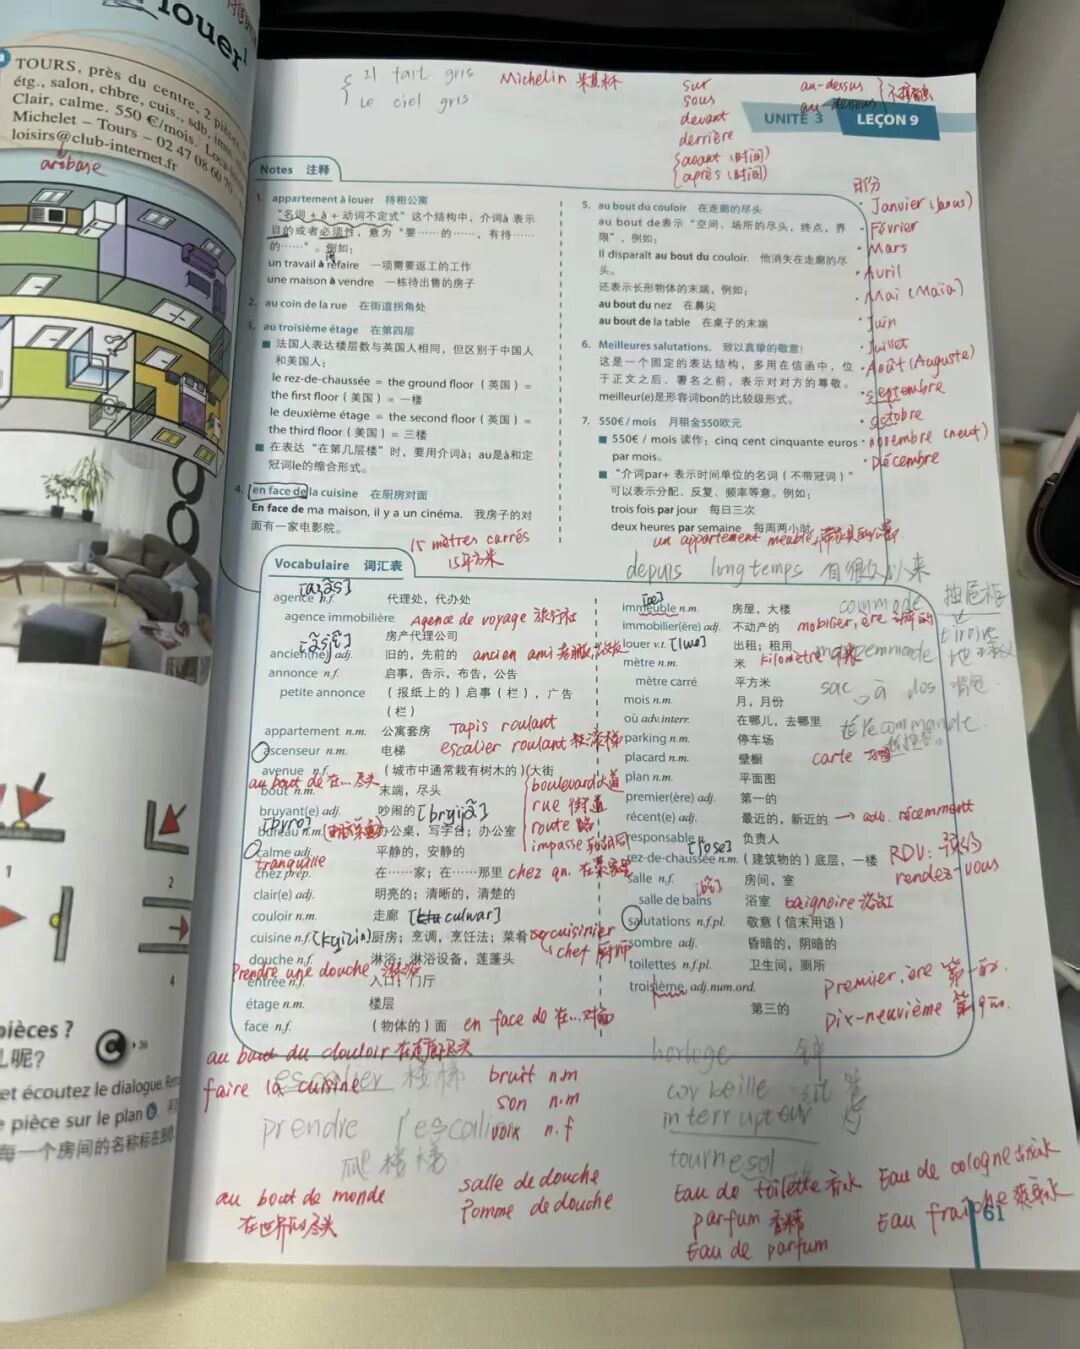 louer¹
TOURS, près du centre, 2 pièces,
étg., salon, chbre, cuis., sdb, imm.
Clair, calme. 550 €/mois. Loca
Michelet – Tours – 02 47 08 60 70
loisirs@club-internet.fr
arobase
Il fait gris
Le ciel gris.
Michelin 米其林
sur
sous
devant
derrière
avant (时间)
après (时间)
au-dessus
au-dessous
UNITÉ 3 LEÇON 9
Notes 注释
1. appartement à louer 待租公寓
“名词 + à + 动词不定式”这个结构中，介词à 表示
目的或者必须性，意为“要……的……、有待……
的……”。例如：
un travail à refaire 一项需要返工的工作
une maison à vendre 一栋待出售的房子
2. au coin de la rue 在街道拐角处
3. au troisième étage 在第四层
■ 法国人表达楼层数与英国人相同，但区别于中国人
和美国人：
le rez-de-chaussée = the ground floor（英国）=
the first floor（美国）= 一楼
le deuxième étage = the second floor（英国）=
the third floor（美国）= 三楼
■ 在表达“在第几层楼”时，要用介词à；au是à和定
冠词le的缩合形式。
4. en face de la cuisine 在厨房对面
En face de ma maison, il y a un cinéma. 我房子的对
面有一家电影院。
15 mètren carrés
15平方米
5. au bout du couloir 在走廊的尽头
au bout de表示“空间、场所的尽头，终点，界
限”，例如：
Il disparaît au bout du couloir. 他消失在走廊的尽
头。
还表示长形物体的末端，例如：
au bout du nez 在鼻尖
au bout de la table 在桌子的末端
6. Meilleures salutations. 致以真挚的敬意!
这是一个固定的表达结构，多用在信函中，位
于正文之后、署名之前，表示对对方的尊敬。
meilleur(e)是形容词bon的比较级形式。
7. 550€ / mois 月租金550欧元
■ 550€ / mois 读作：cinq cent cinquante euros
par mois.
■ “介词par+ 表示时间单位的名词（不带冠词）”
可以表示分配、反复、频率等意。例如：
trois fois par jour 每日三次
deux heures par semaine 每周两小时
un appartement meublé
depuis longtemps
月份
Janvier (Janus)
Février
Mars
Avril
Mai (Maïa)
Juin
Juillet
Août (Auguste)
septembre
octobre
novembre (neuf)
Décembre
Vocabulaire 词汇表
agence n.f. 代理处，代办处
agence immobilière Agence de voyage 旅行社
房产代理公司
ancien(ne) adj. 旧的，先前的 ancien ami
annonce n.f. 启事，告示，布告，公告
petite annonce （报纸上的）启事（栏），广告
（栏）
appartement n.m. 公寓套房 Tapis roulant
ascenseur n.m. 电梯 escalier roulant
avenue n.f. （城市中通常栽有树木的）大街
au bout de 在...尽头
bout n.m. 末端，尽头
bruyant(e) adj. 吵闹的
bureau n.m. 办公桌，写字台；办公室
calme adj. 平静的，安静的
tranquille
chez prép. 在……家；在……那里 chez qn. 在某家里
clair(e) adj. 明亮的；清晰的，清楚的
couloir n.m. 走廊 culwar]
cuisine n.f. 厨房；烹调，烹饪法；菜肴 cuisinier
chef 厨师
douche n.f. 淋浴；淋浴设备，莲蓬头
Prendre une douche 淋浴
entrée n.f. 入口；门厅
étage n.m. 楼层
face n.f. （物体的）面 en face de 在...对面
boulevard 大道
rue 街道
route 路
impasse 死胡同
immeuble n.m. 房屋，大楼
immobilier(ère) adj. 不动产的 mobilier,ère
louer v.t. [lwe] 出租；租用
mètre n.m. 米 kilomètre 千米
mètre carré 平方米
mois n.m. 月，月份
où adv.interr. 在哪儿，去哪里
parking n.m. 停车场
placard n.m. 壁橱 carte
plan n.m. 平面图
premier(ère) adj. 第一的
récent(e) adj. 最近的，新近的 → adv. récemment
responsable n. 负责人
rez-de-chaussée n.m. （建筑物的）底层，一楼 RDV: 预约
rendez-vous
salle n.f. 房间，室
salle de bains 浴室 baignoire 浴缸
salutations n.f.pl. 敬意（信末用语）
sombre adj. 昏暗的，阴暗的
toilettes n.f.pl. 卫生间，厕所
troisième adj.num.ord. 第三的
premier, ère
Dix-neuvième
commode
sac à dos 背包
télécommande
au bout du clouloir 在走廊尽头
escalier 楼梯
faire la cuisine
prendre l'escalier
爬楼梯
bruit n.m
son n.m
voix n.f
au bout de monde
在世界的尽头
salle de douche
Pomme de douche
horloge 钟
corbeille
interrupteur
tournesol
Eau de toilette 香水
parfum 香精
Eau de parfum
Eau de cologne 古龙水
Eau fraîche
61
1
2
4
pièces ?
儿呢?
39
et écoutez le dialogue.
e pièce sur le plan
每一个房间的名称标在图